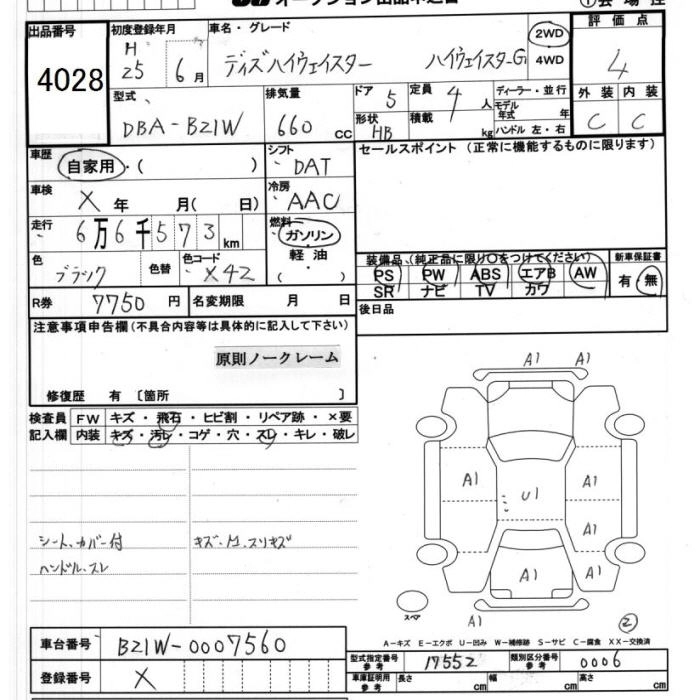 オークション出品申込書
①会場控
出品番号
4028
初度登録年月
H
25 6月
車名・グレード
ディズハイウェイスター ハイウェイスターG
2WD
4WD
評価点
4
外装 内装
C C
型式
DBA-B21W
排気量
660 CC
ドア 5
形状 HB
定員 4 人
積載 kg
ディーラー・並行
モデル年式 年
ハンドル 左・右
車歴
自家用・( )
シフト
DAT
セールスポイント(正常に機能するものに限ります)
車検
X 年 月( 日)
冷房
AAC
走行
6万6千573km
燃料
ガソリン
軽油
( ・ )
色
ブラック
色替
色コード
X42
装備品(純正品に限り○をつけてください)
PS PW ABS エアB AW
SR ナビ TV カワ
新車保証書
有・無
R券 7750 円
名変期限 月 日
後日品
注意事項申告欄(不具合内容等は具体的に記入して下さい)
原則ノークレーム
修復歴 有 〔箇所 〕
検査員
記入欄
FW キズ・飛石・ヒビ割・リペア跡・×要
内装 キズ・汚レ・コゲ・穴・スレ・キレ・破レ
シート、カバー付
ハンドル、スレ
A1 A1
A1 A1
U1
A1
A1 A1
A1
スペア
②
A-キズ E-エクボ U-凹み W-補修跡 S-サビ C-腐食 XX-交換済
車台番号 B21W-0007560
登録番号 X
型式指定番号
参考
17552
類別区分番号
参考
0006
車庫証明用
参考
長さ cm 幅 cm 高さ cm